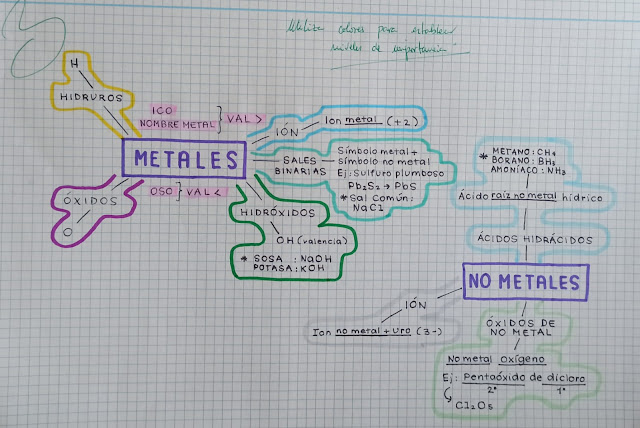 Utilice colores para establecer
niveles de importancia.
H
HIDRUROS
ICO
NOMBRE METAL
VAL >
METALES
OSO
VAL <
ÓXIDOS
O
IÓN
Ion metal (+2)
SALES
BINARIAS
Símbolo metal +
símbolo no metal
Ej: Sulfuro plumboso
Pb₂S₂ → PbS
* Sal Común:
NaCl
HIDRÓXIDOS
OH (valencia)
* SOSA : NaOH
POTASA: KOH
METANO: CH₄
* BORANO: BH₃
AMONÍACO: NH₃
Ácido raíz no metal hídrico
ÁCIDOS HIDRÁCIDOS
NO METALES
IÓN
Ion no metal + uro (3-)
ÓXIDOS DE
NO METAL
No metal Oxígeno
Ej: Pentaóxido de dicloro
2º 1º
Cl₂O₅